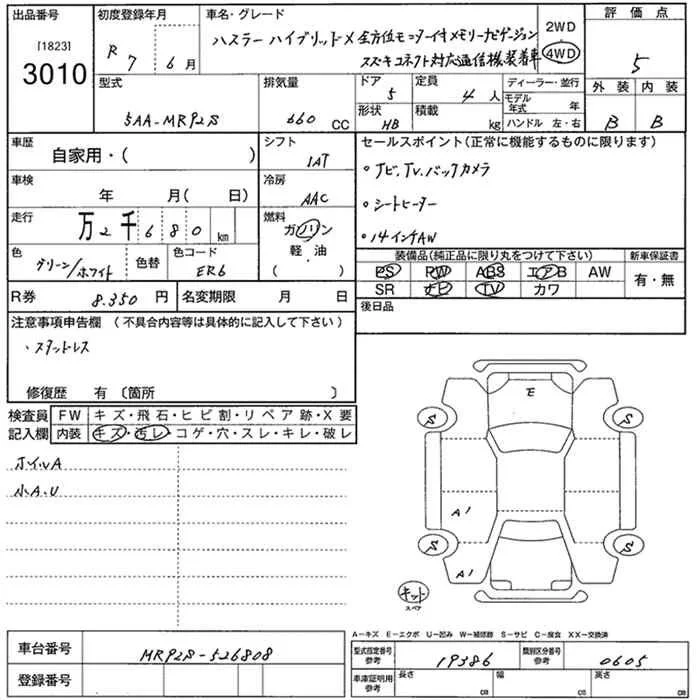 出品番号 初度登録年月 車名・グレード 2WD 評価点
[1823] 3010 R 7 6月 ハスラー ハイブリッドX 全方位モニター付きメモリーナビゲーション 4WD 5
スズキコネクト対応通信機装着車
型式 排気量 ドア 定員 ディーラー・並行 外装 内装
5AA-MR92S 660 CC 5 4人 モデル年式 年 B B
形状 HB 積載 kg ハンドル 左・右
車歴 シフト セールスポイント(正常に機能するものに限ります)
自家用・( ) IAT 。ナビ、TV、バックカメラ
車検 冷房
年 月( 日) AAC 。シートヒーター
走行 燃料
万2千680km ガソリン 。14インチAW
軽・油
( )
色 色替 色コード 装備品(純正品に限り丸をつけて下さい) 新車保証書
グリーン/ホワイト ER6 PS PW ABS エアB AW 有・無
SR ナビ TV カワ
R券 8.350 円 名変期限 月 日 後日品
注意事項申告欄(不具合内容等は具体的に記入して下さい)
・スタットレス
修復歴 有〔箇所 〕
検査員 FW キズ・飛石・ヒビ割・リペア跡・X要
記入欄 内装 キズ・汚レ・コゲ・穴・スレ・キレ・破レ
小A.U
E
S S
A1
S S
A1
キット
スペア
A-キズ E-エクボ U-凹み W-補修跡 S-サビ C-腐食 XX-交換済
車台番号 MR92S-526808 型式指定番号 参考 19386 類別区分番号 参考 0605
登録番号 車庫証明用 参考 長さ cm 幅 cm 高さ cm